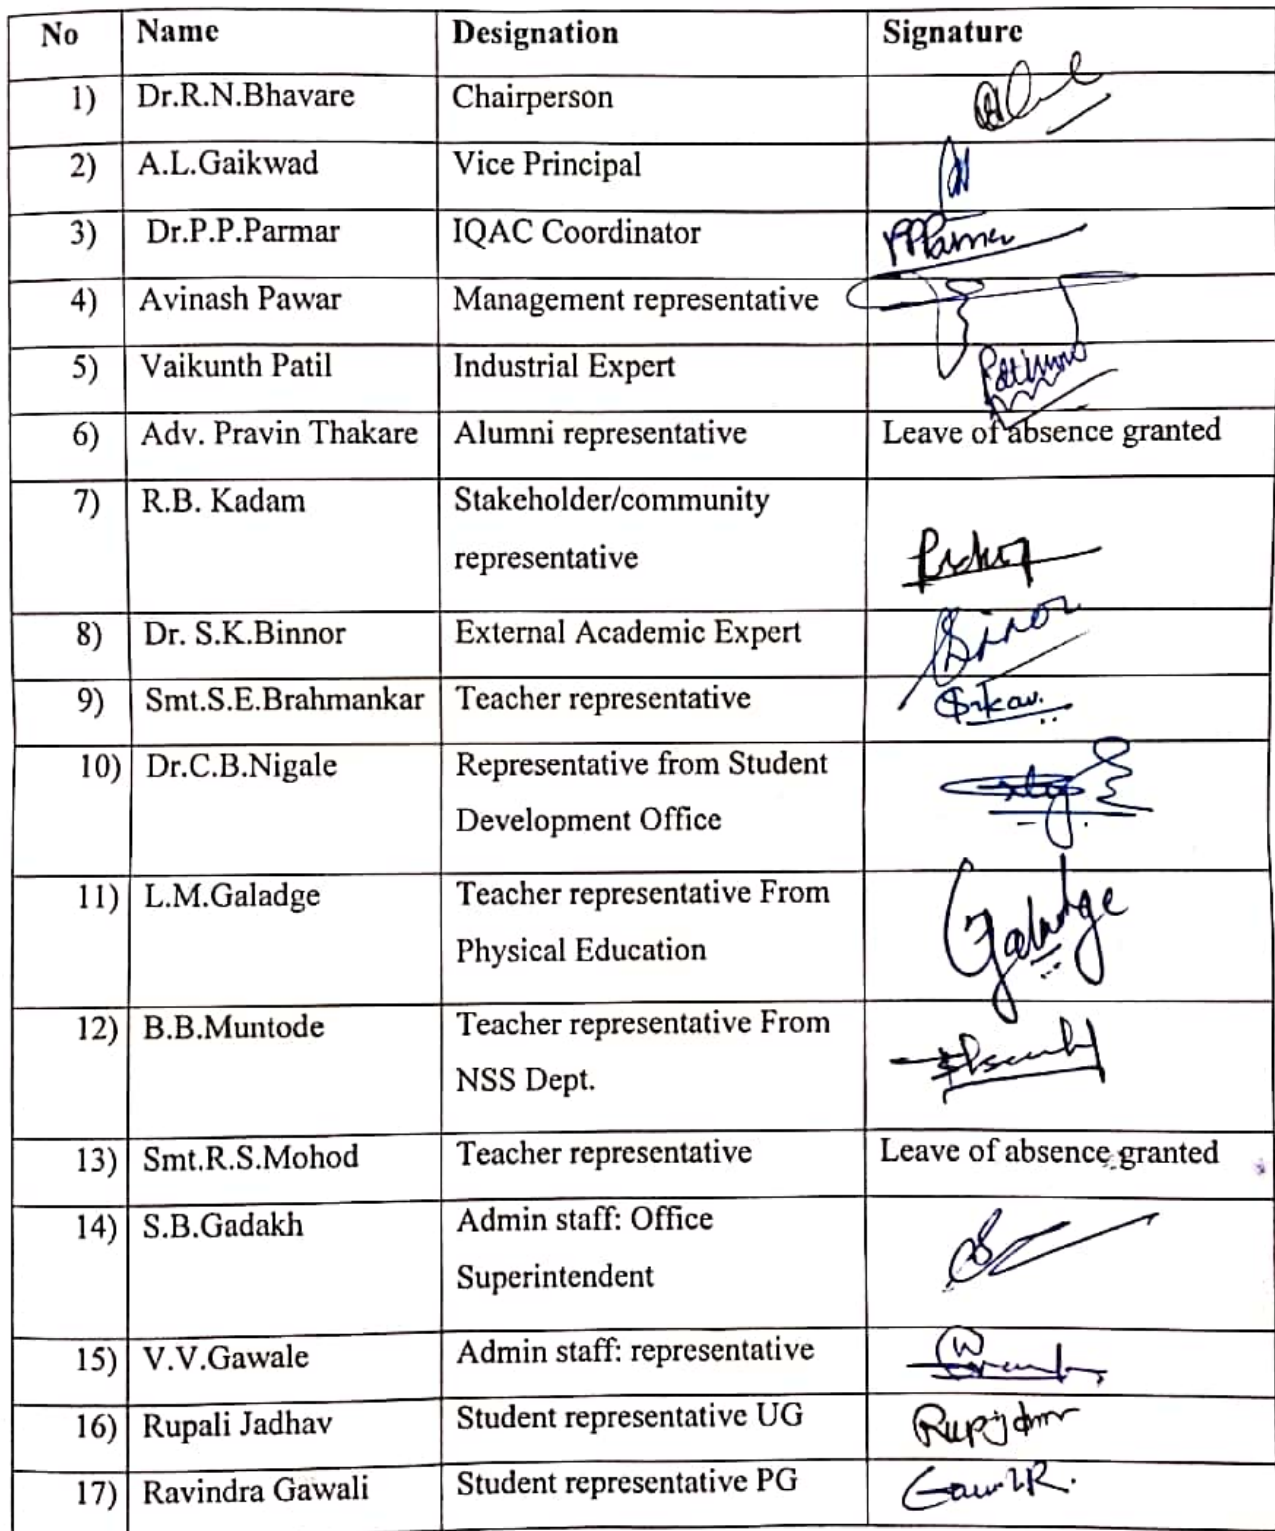 No Name Designation Signature
1) Dr.R.N.Bhavare Chairperson
2) A.L.Gaikwad Vice Principal
3) Dr.P.P.Parmar IQAC Coordinator
4) Avinash Pawar Management representative
5) Vaikunth Patil Industrial Expert
6) Adv. Pravin Thakare Alumni representative Leave of absence granted
7) R.B. Kadam Stakeholder/community
representative
8) Dr. S.K.Binnor External Academic Expert
9) Smt.S.E.Brahmankar Teacher representative
10) Dr.C.B.Nigale Representative from Student
Development Office
11) L.M.Galadge Teacher representative From
Physical Education Galadge
12) B.B.Muntode Teacher representative From
NSS Dept.
13) Smt.R.S.Mohod Teacher representative Leave of absence granted
14) S.B.Gadakh Admin staff: Office
Superintendent
15) V.V.Gawale Admin staff: representative
16) Rupali Jadhav Student representative UG
17) Ravindra Gawali Student representative PG